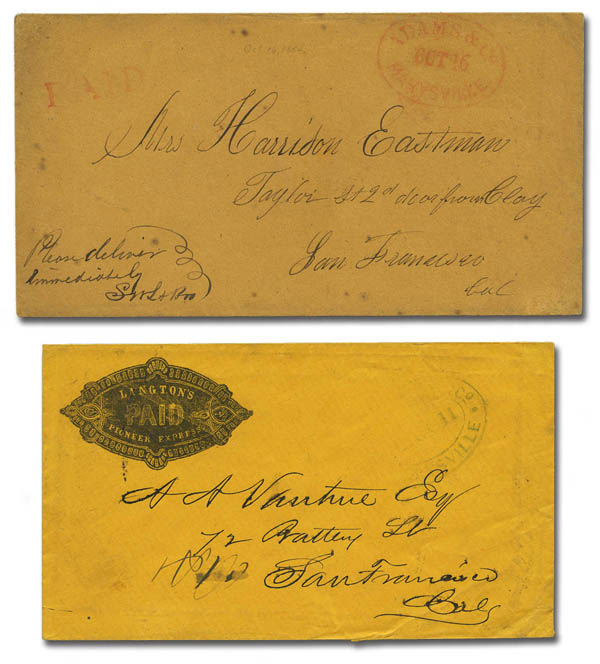 Oct 16, 1854
ADAMS & Co
OCT 16
MARYSVILLE
PAID
Mrs Harrison Eastman
Taylor St 2d door from Clay
San Francisco
Cal
Please deliver
immediately
LANGTON'S
PAID
PIONEER EXPRESS
Co
11
VILLE
A A Vantine Esq
72 Battery St
San Francisco
Cal